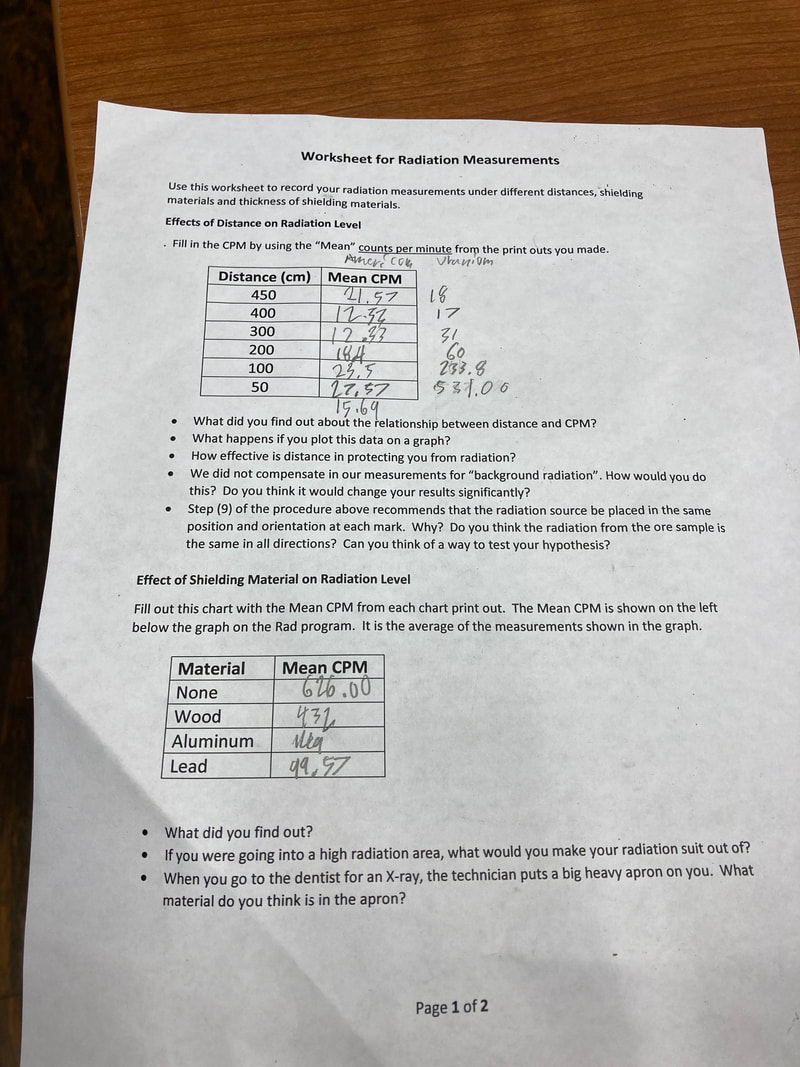 Worksheet for Radiation Measurements
Use this worksheet to record your radiation measurements under different distances, shielding
materials and thickness of shielding materials.
Effects of Distance on Radiation Level
. Fill in the CPM by using the “Mean” counts per minute from the print outs you made.
Uranium
Distance (cm) Mean CPM
450 21.57 18
400 12.32 17
300 12.33 31
200 60
100 23.5 233.8
50 27.57 531.00
15.69
• What did you find out about the relationship between distance and CPM?
• What happens if you plot this data on a graph?
• How effective is distance in protecting you from radiation?
• We did not compensate in our measurements for “background radiation”. How would you do
this? Do you think it would change your results significantly?
• Step (9) of the procedure above recommends that the radiation source be placed in the same
position and orientation at each mark. Why? Do you think the radiation from the ore sample is
the same in all directions? Can you think of a way to test your hypothesis?
Effect of Shielding Material on Radiation Level
Fill out this chart with the Mean CPM from each chart print out. The Mean CPM is shown on the left
below the graph on the Rad program. It is the average of the measurements shown in the graph.
Material Mean CPM
None 626.00
Wood 432
Aluminum
Lead 99.57
• What did you find out?
• If you were going into a high radiation area, what would you make your radiation suit out of?
• When you go to the dentist for an X-ray, the technician puts a big heavy apron on you. What
material do you think is in the apron?
Page 1 of 2